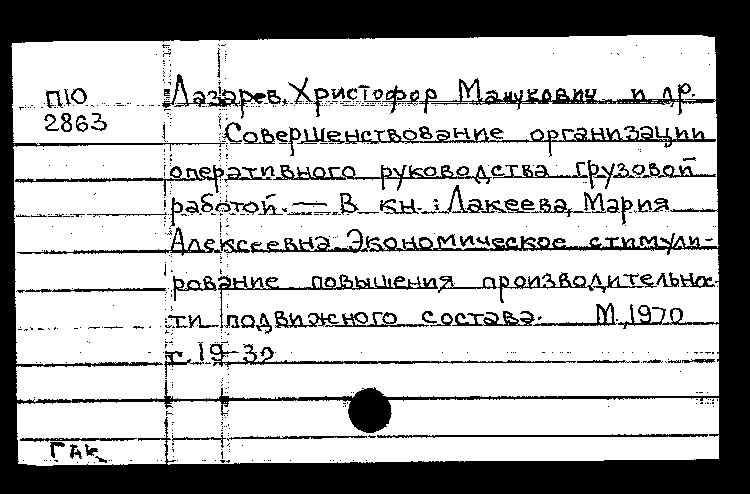 П10 Лазарев, Христофор Манукович и др.
2863 Совершенствование организации
оперативного руководства грузовой
работой. — В кн.: Лакеева, Мария
Алексеевна. Экономическое стимули-
рование повышения производительно-
ти подвижного состава. М., 1970
с. 19-30
ГАК